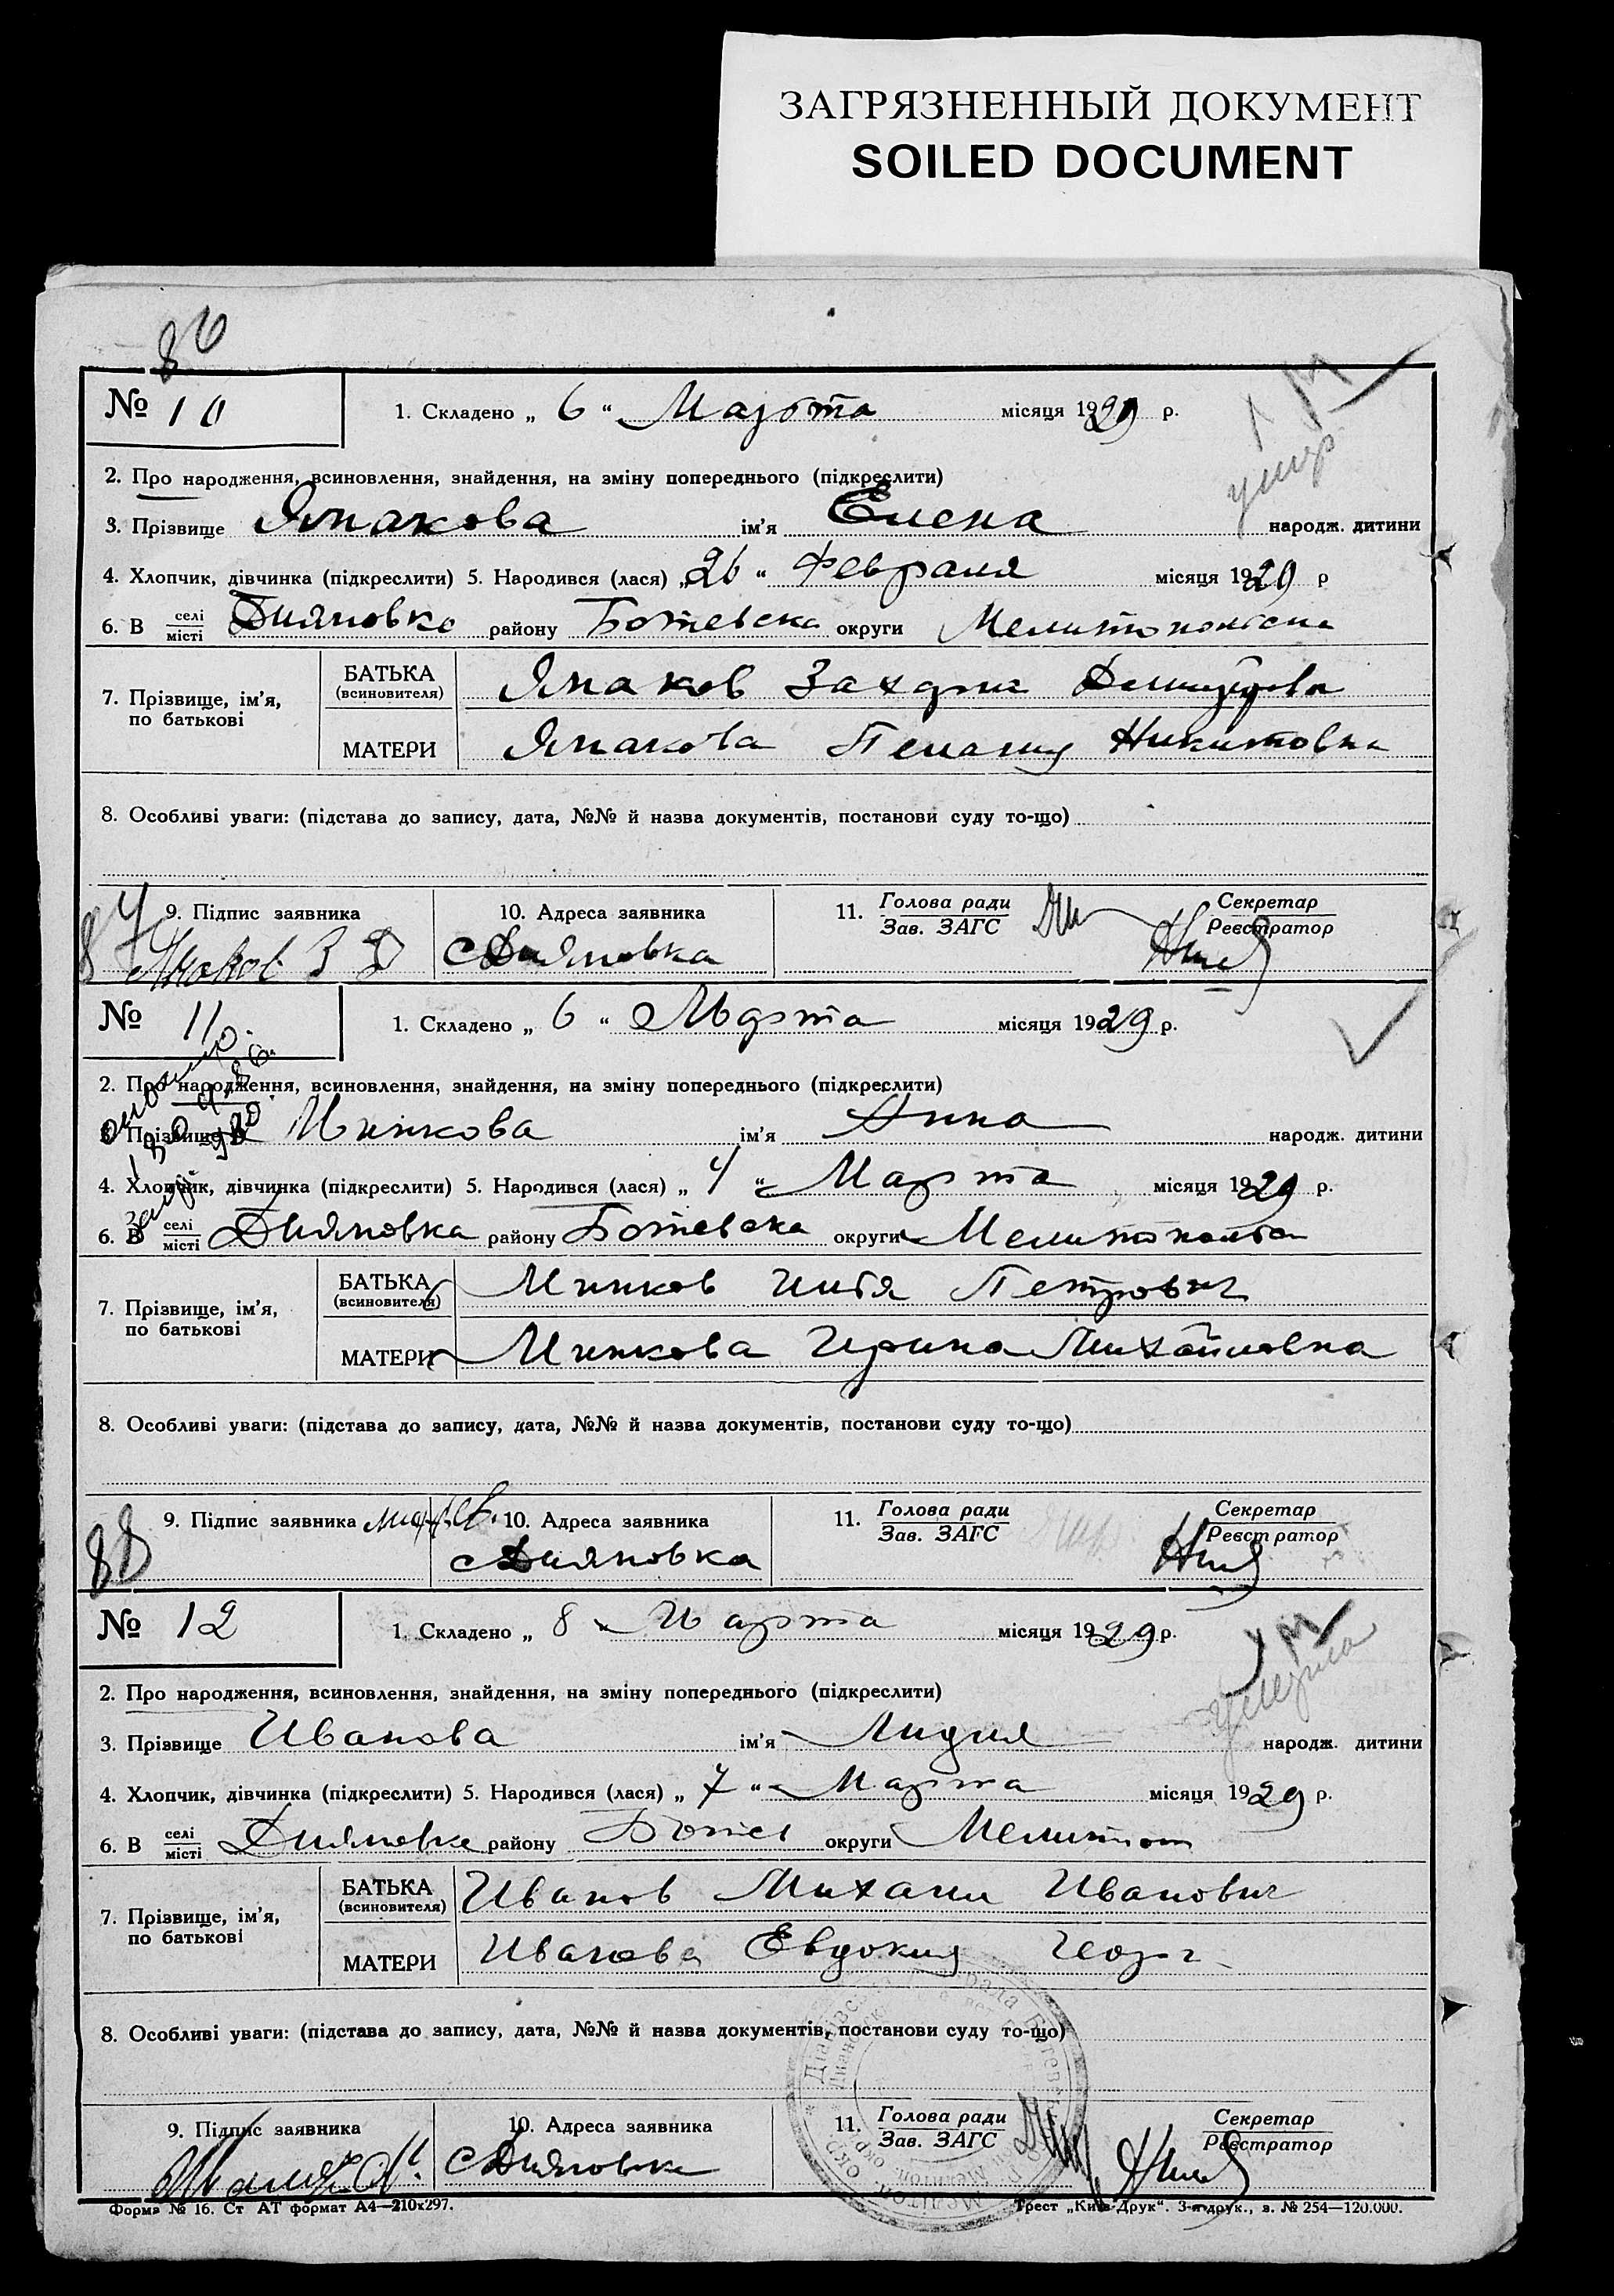 ЗАГРЯЗНЕННЫЙ ДОКУМЕНТ
SOILED DOCUMENT
86
№ 10 1. Складено „ 6 “ Марта місяця 1929 р.
умер
2. Про народження, всиновлення, знайдення, на зміну попереднього (підкреслити)
3. Прізвище Ямакова ім'я Елена народж. дитини
4. Хлопчик, дівчинка (підкреслити) 5. Народився (лася) „ 26 “ Февраля місяця 1929 р
6. В селі місті Дияновка району Ботевска округи
7. Прізвище, ім'я, по батькові
БАТЬКА (всиновителя) Ямаков Захарий
МАТЕРИ Ямакова Пелагия Никитовна
8. Особливі уваги: (підстава до запису, дата, №№ й назва документів, постанови суду то-що)
87 9. Підпис заявника 10. Адреса заявника 11. Голова ради Зав. ЗАГС Секретар Реєстратор
Ямаков З Д с Дияновка
№ 11 1. Складено „ 6 “ Марта місяця 1929 р.
2. Про народження, всиновлення, знайдення, на зміну попереднього (підкреслити)
3. Прізвище Минкова ім'я Анна народж. дитини
4. Хлопчик, дівчинка (підкреслити) 5. Народився (лася) „ 4 “ Марта місяця 1929 р.
6. В селі місті Дияновка району Ботевска округи
7. Прізвище, ім'я, по батькові
БАТЬКА (всиновителя) Минков Илья Петрович
МАТЕРИ Минкова Ирина Михайловна
8. Особливі уваги: (підстава до запису, дата, №№ й назва документів, постанови суду то-що)
88 9. Підпис заявника 10. Адреса заявника 11. Голова ради Зав. ЗАГС Секретар Реєстратор
с Дияновка
№ 12 1. Складено „ 8 “ Марта місяця 1929 р.
умерла
2. Про народження, всиновлення, знайдення, на зміну попереднього (підкреслити)
3. Прізвище Иванова ім'я Лидия народж. дитини
4. Хлопчик, дівчинка (підкреслити) 5. Народився (лася) „ 7 “ Марта місяця 1929 р.
6. В селі місті Дияновка району Ботев округи Мелитоп
7. Прізвище, ім'я, по батькові
БАТЬКА (всиновителя) Иванов Михаил Иванович
МАТЕРИ Иванова Евдокия Георг
8. Особливі уваги: (підстава до запису, дата, №№ й назва документів, постанови суду то-що)
9. Підпис заявника 10. Адреса заявника 11. Голова ради Зав. ЗАГС Секретар Реєстратор
с Дияновка
Форма № 16. Ст АТ формат А4—210х297. Трест „Київ-Друк“. 3-я друк., з. № 254—120.000.